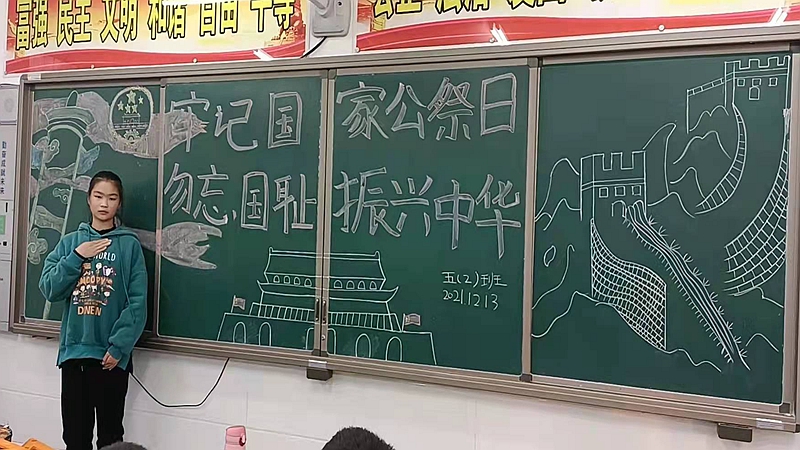 富强 民主 文明 和谐 自由 平等
牢记国家公祭日
勿忘国耻 振兴中华
五(2)班
2021.12.13
勤奋成就未来
SNOOPY